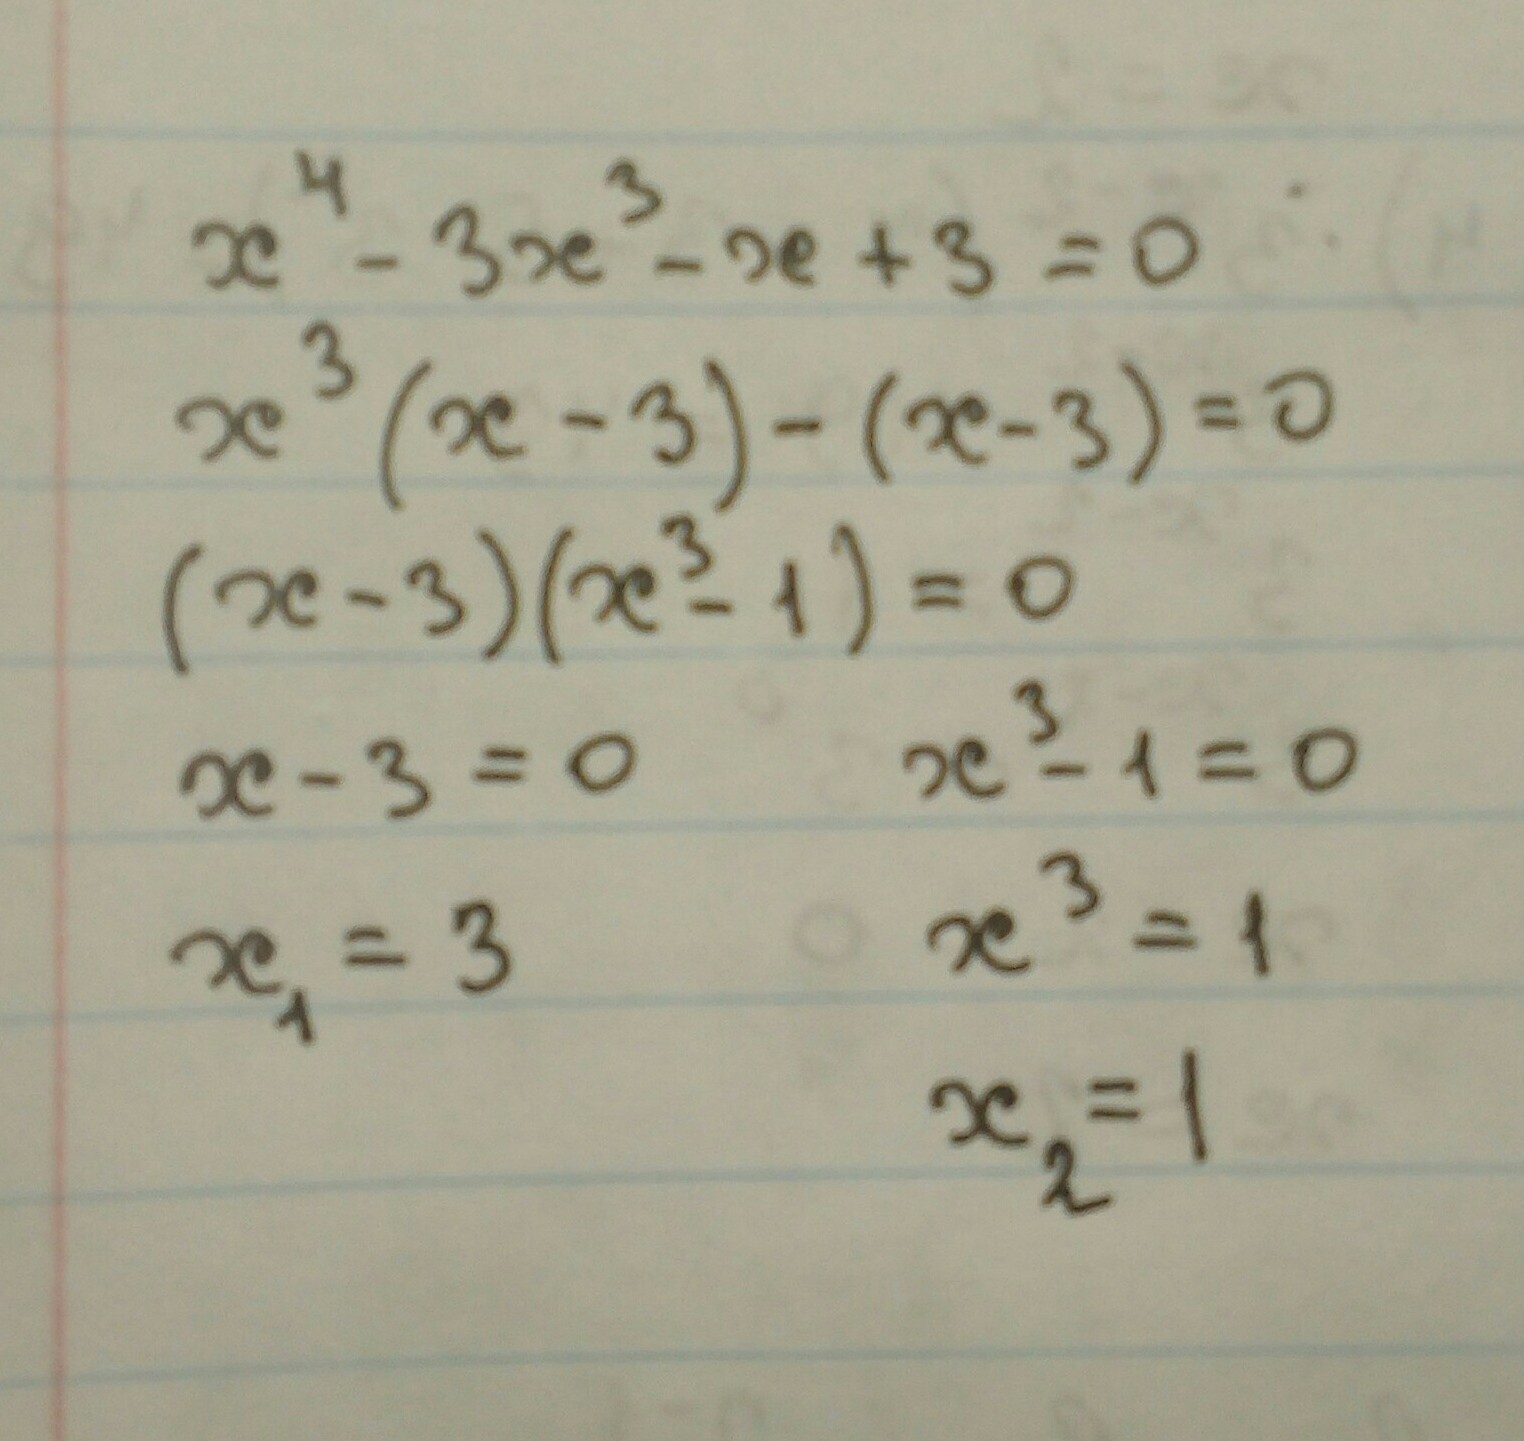 x⁴ - 3x³ - x + 3 = 0
x³ (x - 3) - (x - 3) = 0
(x - 3)(x³ - 1) = 0
x - 3 = 0 x³ - 1 = 0
x₁ = 3 x³ = 1
x₂ = 1